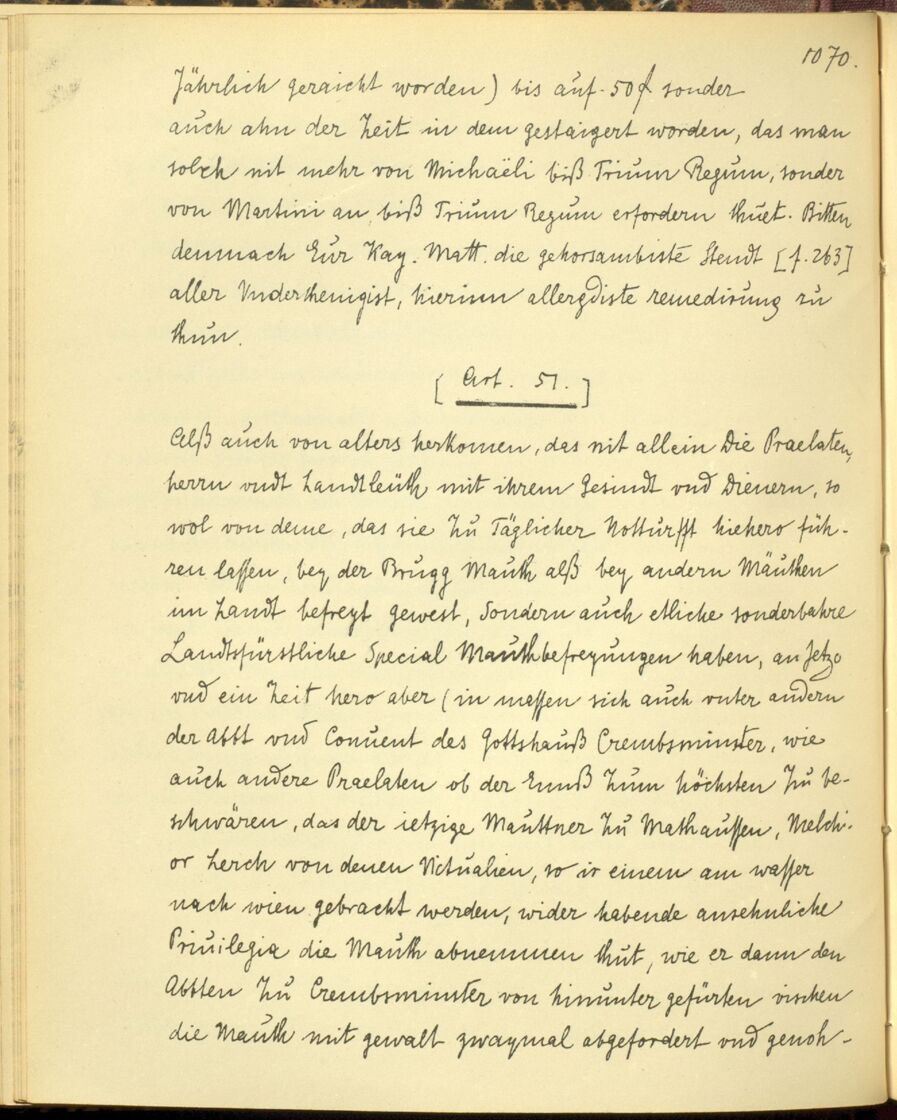 1070.
Jährlich geraicht worden) bis auf 50 f sonder
auch ahn der Zeit in dem gestaigert worden, das man
solch nit mehr von Michaëli biß Trium Regum, sonder
von Martini an biß Trium Regum erfordern thuet. Bitten
demnach Eur Kay. Matt. die gehorsambiste Stendt [f. 263]
aller Vnderthenigist, hierinn allergdiste remedirung zu
thun.
[Art. 51.]
Alß auch von alters herkomen, das nit allein Die Praelaten,
herrn vndt Landtleüth mit ihrem Gesindt vnd Dienern, so
wol von deme, das sie Zu Täglicher Notturfft hiehero füh-
ren lassen, bey der Brugg Mauth alß bey andern Mäuthen
im Landt befreyt gewest, Sondern auch etliche sonderbahre
Landtsfürstliche Special Mauthbefreyungen haben, an Jetzo
vnd ein Zeit hero aber (in massen sich auch vnter andern
der Abbt vnd Conuent des Gottshauß Crembsminster, wie
auch andere Praelaten ob der Ennß Zum höchsten Zu be-
schwären, das der ietzige Mauttner Zu Mathaussen, Melchi-
or Lerch von denen Victualien, so ir einem am wasser
nach wien gebracht werden, wider habende ansehnliche
Priuilegia die Mauth abnemmen thut, wie er dann den
Abbten Zu Crembsminster von hinunter gefürten vischen
die Mauth mit gewalt zwaymal abgefordert vnd genoh-